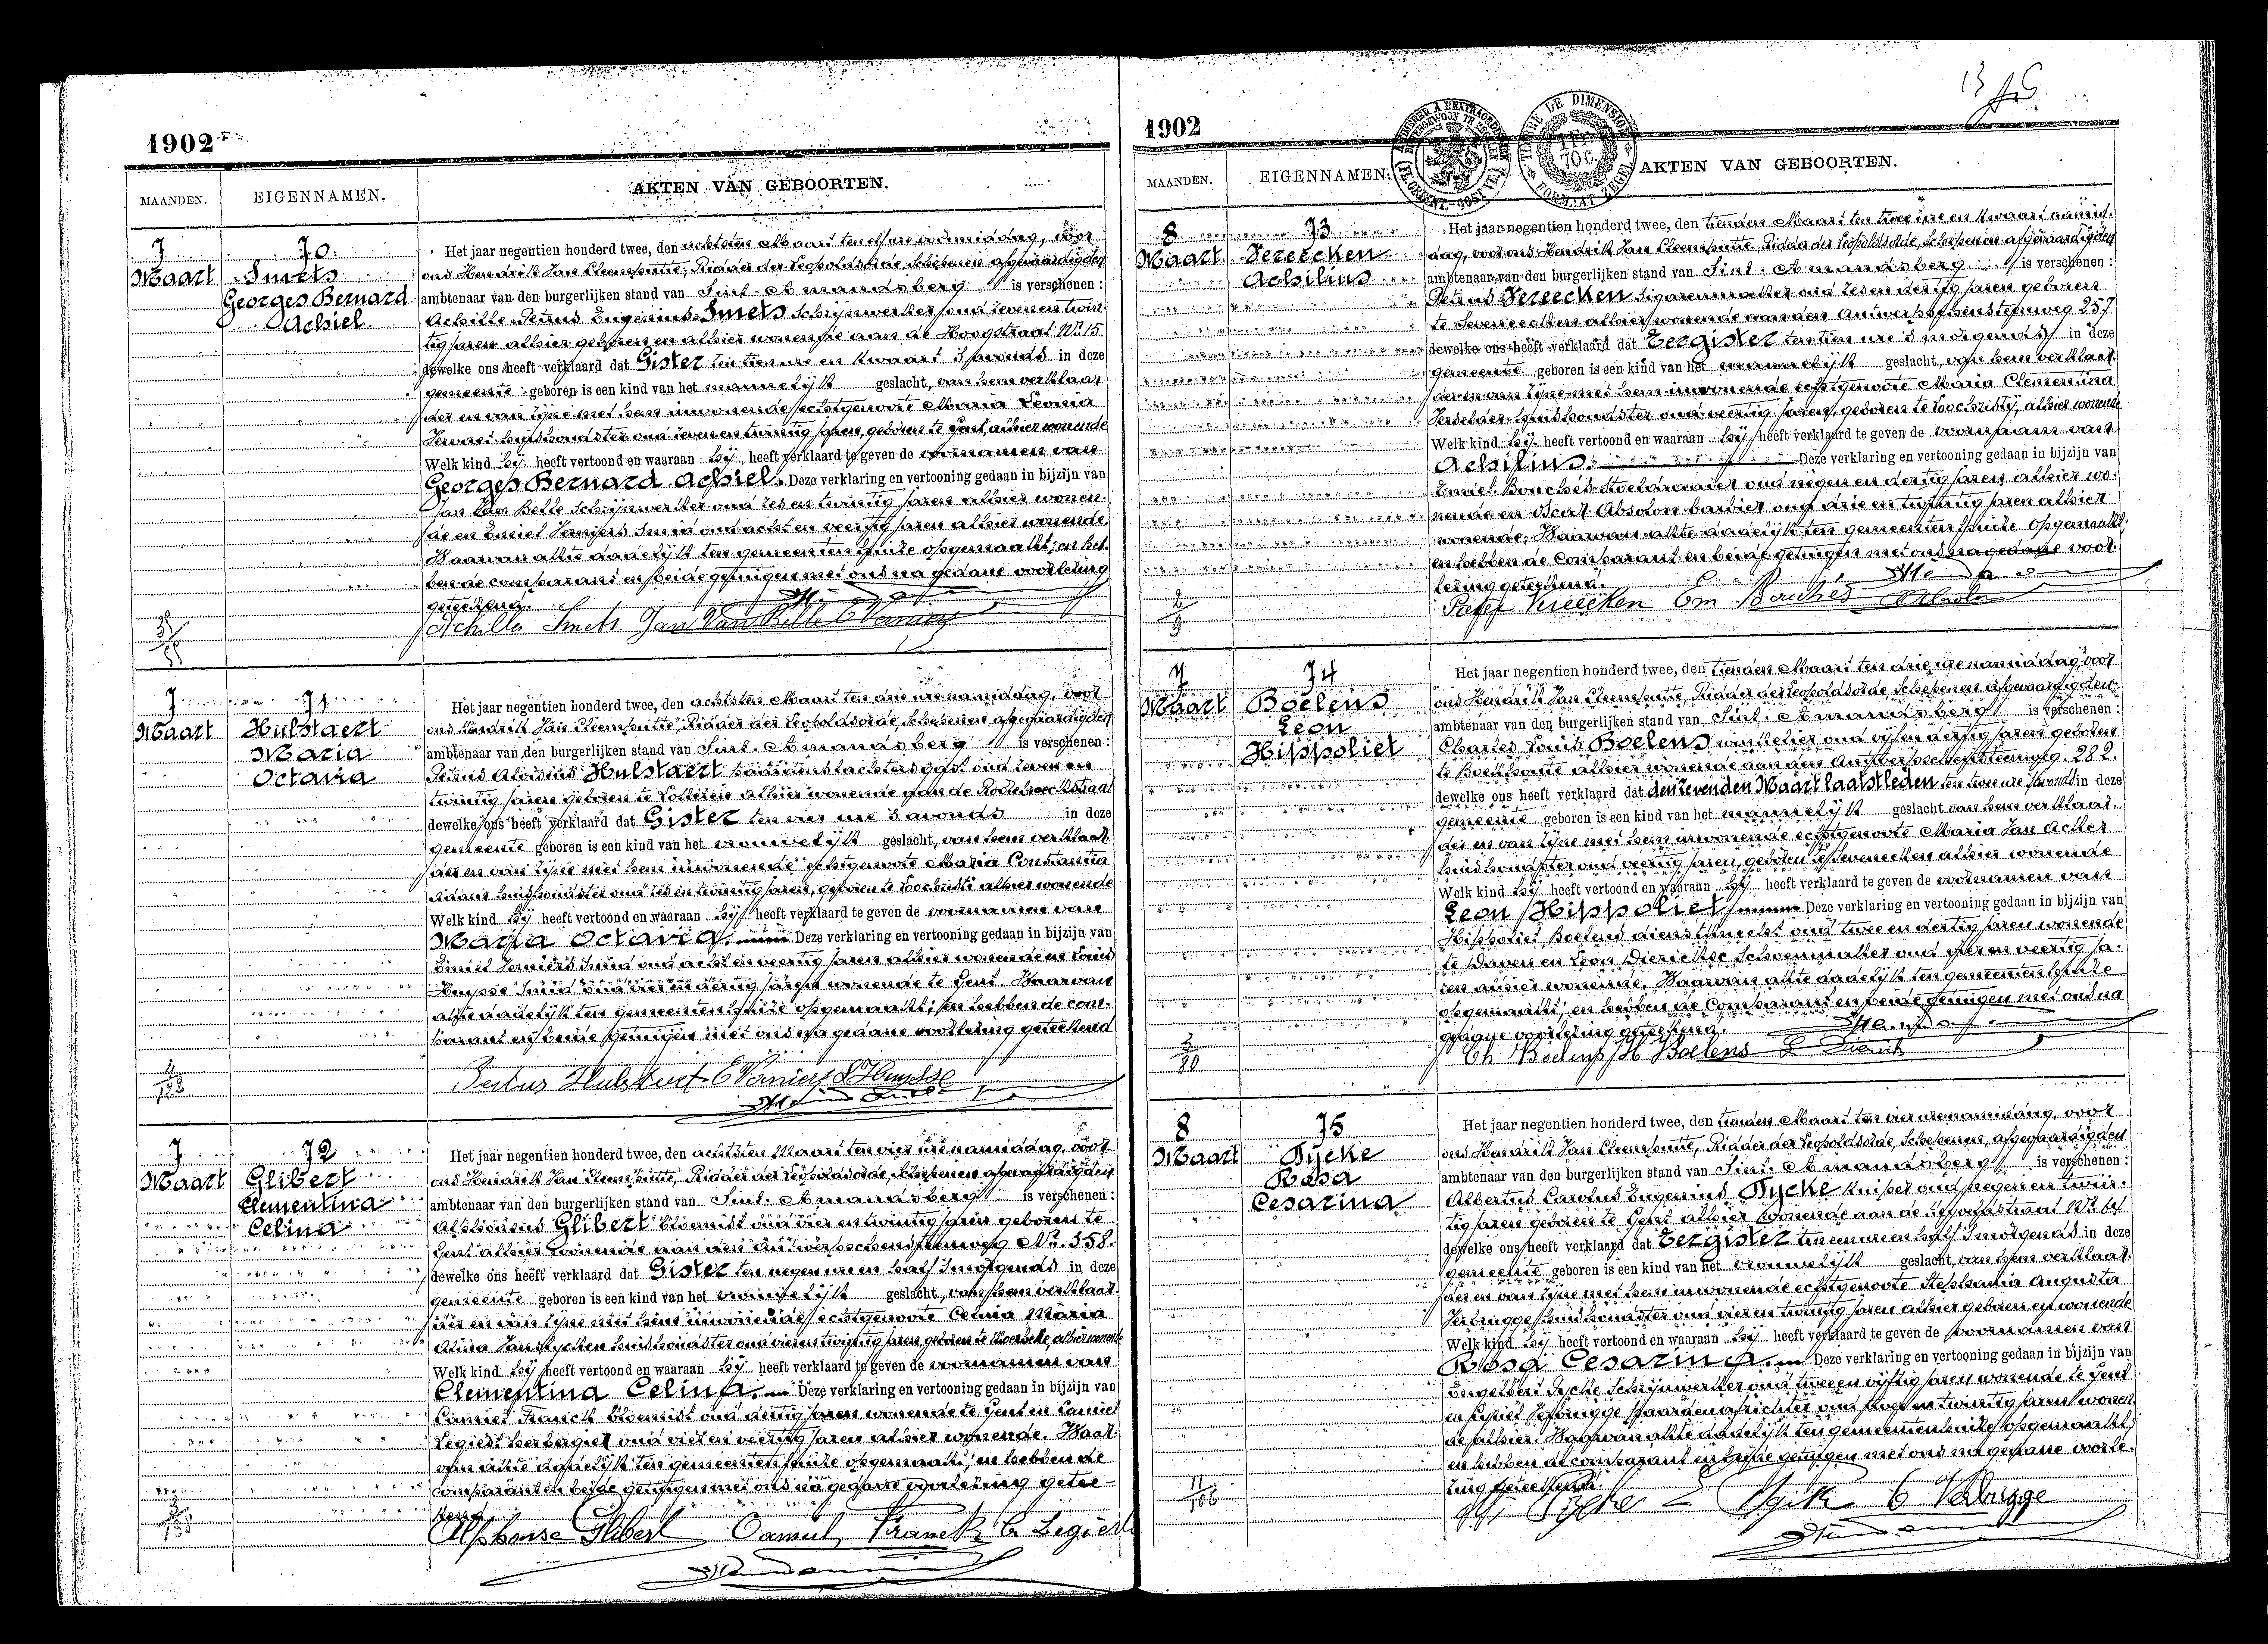 1902
MAANDEN.
EIGENNAMEN.
AKTEN VAN GEBOORTEN.
7
Maart
70
Smets
Georges Bernard
Achiel
Het jaar negentien honderd twee, den achtsten Maart ten elf ure voormiddag, voor
ons Hendrik Jan Ridder der Leopoldsorde, Schepenen afgevaardigden
ambtenaar van den burgerlijken stand van Sint-Amandsberg is verschenen:
Achille Petrus Eugenius Smets Schrijnwerker oud zeven en twin-
tig jaren alhier geboren en alhier wonende aan de Hoogstraat Nr. 15
dewelke ons heeft verklaard dat Gister ten tien ure en kwaart s'avonds in deze
gemeente geboren is een kind van het mannelijk geslacht, van hem verklaar-
der en van zijne met hem inwonende echtgenoote Maria Leonia
huishoudster oud zeven en twintig jaren, geboren te Gent, alhier wonende
Welk kind hij heeft vertoond en waaraan hij heeft verklaard te geven de voornamen van
Georges Bernard Achiel. Deze verklaring en vertooning gedaan in bijzijn van
Jan Van Belle Schrijnwerker oud zes en twintig jaren alhier wonen-
de en Emiel Smid oud acht en veertig jaren alhier wonende.
Waarvan akte dadelijk ten gemeentenhuize opgemaakt; en heb-
ben de comparant en beide getuigen met ons na gedane voorlezing
geteekend.
Achille Smets Jan Van Belle
7
Maart
71
Hulstaert
Maria
Octavia
Het jaar negentien honderd twee, den achtsten Maart ten drie ure namiddag, voor
ons Hendrik Jan Ridder der Leopoldsorde, Schepenen afgevaardigden
ambtenaar van den burgerlijken stand van Sint-Amandsberg is verschenen:
Petrus Aloisius Hulstaert oud zeven en
twintig jaren geboren te alhier wonende aan de
dewelke ons heeft verklaard dat Gister ten vier ure s'avonds in deze
gemeente geboren is een kind van het vrouwelijk geslacht, van hem verklaar-
der en van zijne met hem inwonende echtgenoote Maria Constantia
huishoudster oud zes en twintig jaren, geboren te Loochristi alhier wonende
Welk kind hij heeft vertoond en waaraan hij heeft verklaard te geven de voornamen van
Maria Octavia. Deze verklaring en vertooning gedaan in bijzijn van
Emiel Smid oud acht en veertig jaren alhier wonende en Louis
Huysse Smid oud vier en dertig jaren wonende te Gent. Waarvan
akte dadelijk ten gemeentenhuize opgemaakt; en hebben de com-
parant en beide getuigen met ons na gedane voorlezing geteekend
Hulstaert L Huysse
7
Maart
72
Glibert
Clementina
Celina
Het jaar negentien honderd twee, den achtsten Maart ten vier ure namiddag, voor
ons Hendrik Jan Ridder der Leopoldsorde, Schepenen afgevaardigden
ambtenaar van den burgerlijken stand van Sint-Amandsberg is verschenen:
Alphonsus Glibert bloemist oud vier en twintig jaren geboren te
Gent alhier wonende aan den Antwerpschensteenweg Nr. 358.
dewelke ons heeft verklaard dat Gister ten negen ure en half s'morgends in deze
gemeente geboren is een kind van het vrouwelijk geslacht, van hem verklaar-
der en van zijne met hem inwonende echtgenoote Celina Maria
huishoudster oud vier en twintig jaren geboren te Moerbeke, alhier wonende
Welk kind hij heeft vertoond en waaraan hij heeft verklaard te geven de voornamen van
Clementina Celina. Deze verklaring en vertooning gedaan in bijzijn van
Camiel Franck bloemist oud dertig jaren wonende te Gent en Camiel
Legiest herbergier oud vier en veertig jaren alhier wonende. Waar-
van akte dadelijk ten gemeentenhuize opgemaakt; en hebben de
comparant en beide getuigen met ons na gedane voorlezing getee-
kend.
Alphonse Glibert Camiel Franck C. Legiest
1902
MAANDEN.
EIGENNAMEN.
AKTEN VAN GEBOORTEN.
8
Maart
73
Vereecken
Achilius
Het jaar negentien honderd twee, den tienden Maart ten twee ure en kwaart namid-
dag, voor ons Hendrik Jan Ridder der Leopoldsorde, Schepenen afgevaardigden
ambtenaar van den burgerlijken stand van Sint-Amandsberg is verschenen:
Petrus Vereecken Sigarenmaker oud zes en dertig jaren geboren
te Seveneecken alhier wonende aan den Antwerpschensteenweg 257
dewelke ons heeft verklaard dat Eergister ten tien ure s'morgends in deze
gemeente geboren is een kind van het mannelijk geslacht, van hem verklaar-
der en van zijne met hem inwonende echtgenoote Maria Clementina
huishoudster oud veertig jaren, geboren te Loochristij, alhier wonende
Welk kind hij heeft vertoond en waaraan hij heeft verklaard te geven de voornaam van
Achilius. Deze verklaring en vertooning gedaan in bijzijn van
Emiel Bouchés Stoeldraaier oud negen en dertig jaren alhier wo-
nende en Oscar Absolon barbier oud drie en twintig jaren alhier
wonende. Waarvan akte dadelijk ten gemeentenhuize opgemaakt;
en hebben de comparant en beide getuigen met ons na gedane voor-
lezing geteekend.
Vereecken Em Bouchés
7
Maart
74
Boelens
Leon
Hippoliet
Het jaar negentien honderd twee, den tienden Maart ten drie ure namiddag, voor
ons Hendrik Jan Ridder der Leopoldsorde, Schepenen afgevaardigden
ambtenaar van den burgerlijken stand van Sint-Amandsberg is verschenen:
Charles Louis Boelens winkelier oud vijf en dertig jaren geboren
te Bouchoute alhier wonende aan den Antwerpschensteenweg. 282.
dewelke ons heeft verklaard dat den zevenden Maart laatstleden ten twee ure s'avonds in deze
gemeente geboren is een kind van het mannelijk geslacht van hem verklaar-
der en van zijne met hem inwonende echtgenoote Maria Van Acker
huishoudster oud veertig jaren, geboren te Seveneeken alhier wonende
Welk kind hij heeft vertoond en waaraan hij heeft verklaard te geven de voornamen van
Leon Hippoliet Deze verklaring en vertooning gedaan in bijzijn van
Hippoliet Boelens dienstknecht oud twee en dertig jaren wonende
te en Leon Dierickse Schoenmaker oud vier en veertig ja-
ren alhier wonende. Waarvan akte dadelijk ten gemeentenhuize
opgemaakt; en hebben de comparant en beide getuigen met ons na
gedane voorlezing geteekend.
Ch. Boelens H Boelens
8
Maart
75
Pycke
Rosa
Cesarina
Het jaar negentien honderd twee, den tienden Maart ten vier ure namiddag, voor
ons Hendrik Jan Ridder der Leopoldsorde, Schepenen, afgevaardigden
ambtenaar van den burgerlijken stand van Sint-Amandsberg is verschenen:
Albertus Carolus Eugenius Pycke kuiper oud negen en twin-
tig jaren geboren te Gent alhier wonende aan de
dewelke ons heeft verklaard dat Eergister ten een ure en half s'morgends in deze
gemeente geboren is een kind van het vrouwelijk geslacht, van hem verklaar-
der en van zijne met hem inwonende echtgenoote Stephania Augusta
Verbrugge huishoudster oud vier en twintig jaren alhier geboren en wonende
Welk kind hij heeft vertoond en waaraan hij heeft verklaard te geven de voornamen van
Rosa Cesarina. Deze verklaring en vertooning gedaan in bijzijn van
Engelbert Pycke Schrijnwerker oud twee en vijftig jaren wonende te Gent
en Verbrugge paardenafrichter oud twee en twintig jaren wonen-
de alhier. Waarvan akte dadelijk ten gemeentenhuize opgemaakt;
en hebben de comparant en beide getuigen met ons na gedane voorle-
zing geteekend.
Pycke Verbrugge